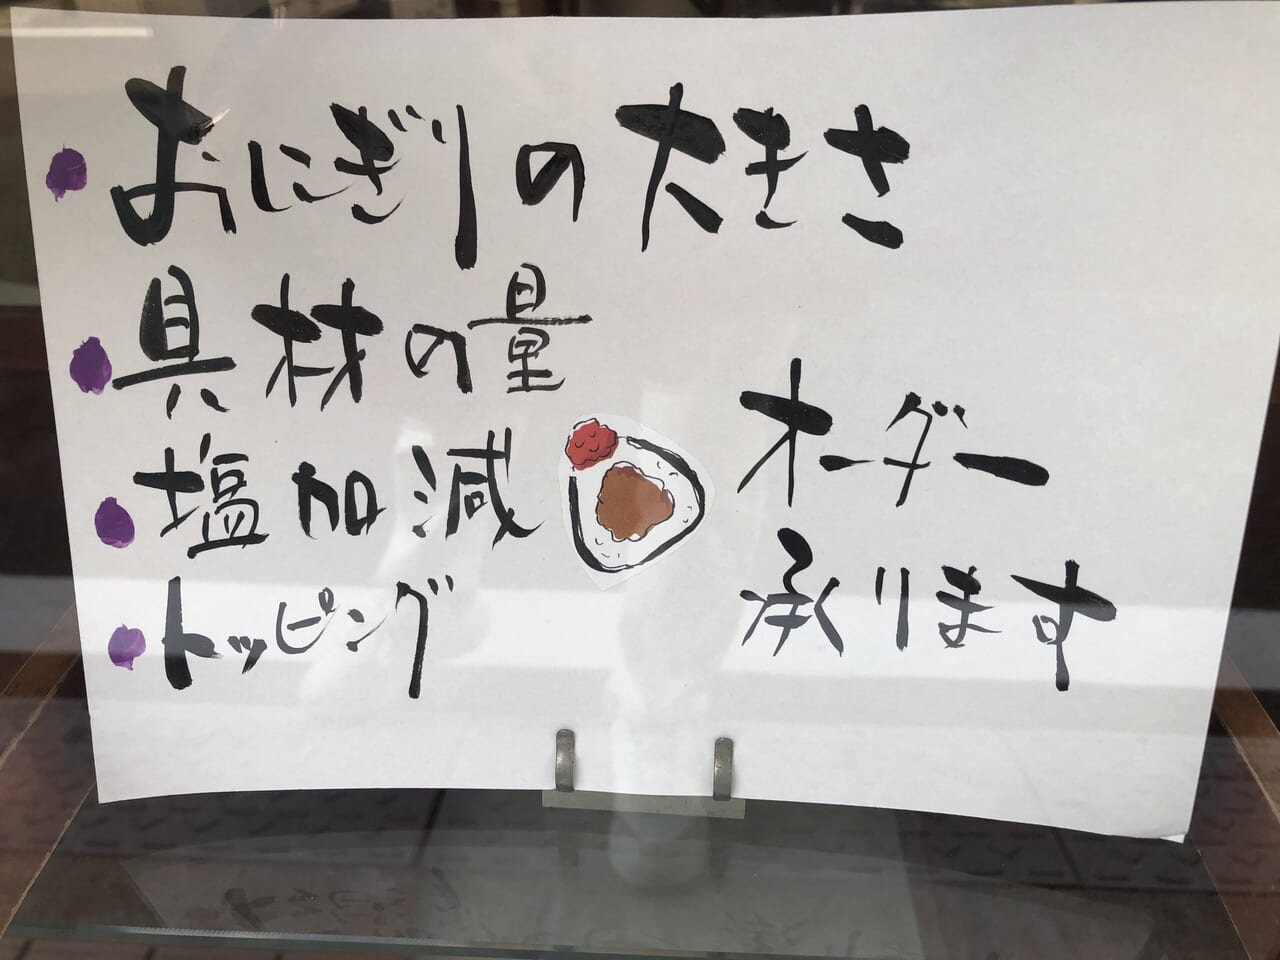 ・おにぎりの大きさ
・具材の量
・塩加減
・トッピング
オーダー
承ります